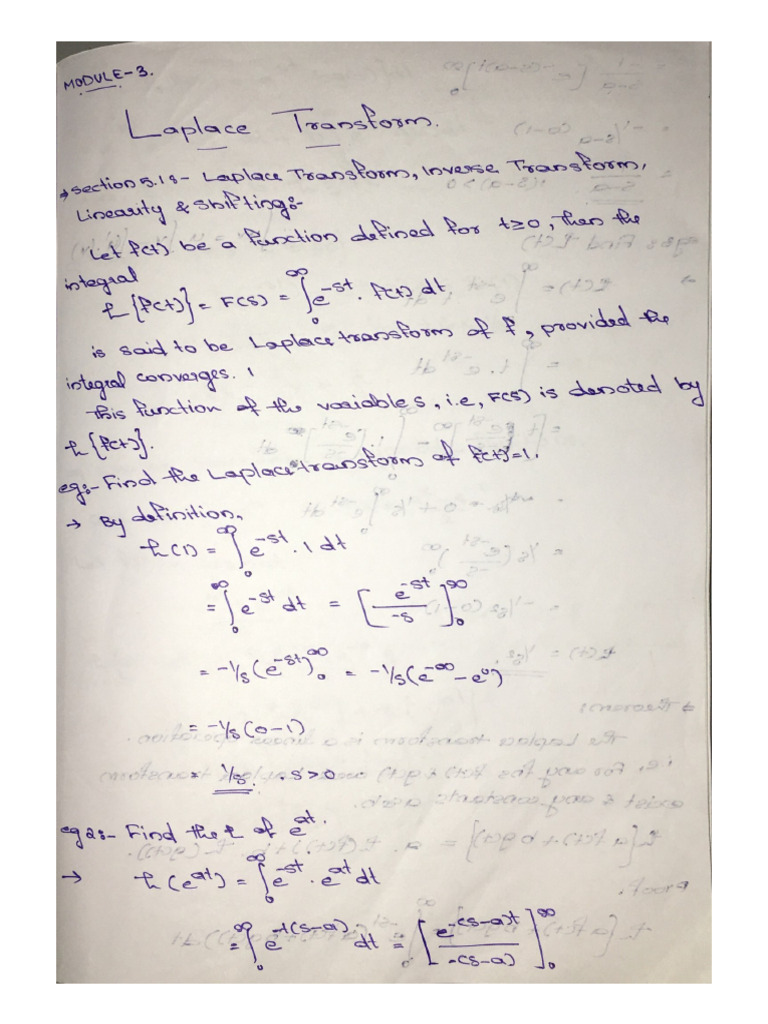 MODULE-3.
Laplace Transform.
→ Section 5.1 :- Laplace Transform, Inverse Transform,
Linearity & Shifting:-
Let f(t) be a function defined for t≥0, then the
integral
Ł{f(t)} = F(s) = ∫₀^∞ e^{-st} . f(t) dt,
is said to be Laplace transform of f, provided the
integral converges.
This function of the variable s, i.e, F(s) is denoted by
Ł{f(t)}.
eg:- Find the Laplace transform of f(t)=1.
→ By definition,
Ł(1) = ∫₀^∞ e^{-st} . 1 dt
= ∫₀^∞ e^{-st} dt = [e^{-st}/-s]₀^∞
= -1/s (e^{-st})₀^∞ = -1/s (e^{-∞} - e^0)
= -1/s (0-1)
= 1/s . s>0
eg 2:- Find the Ł of e^{at}.
→ Ł(e^{at}) = ∫₀^∞ e^{-st} . e^{at} dt
= ∫₀^∞ e^{-t(s-a)} dt = [e^{-(s-a)t}/-(s-a)]₀^∞